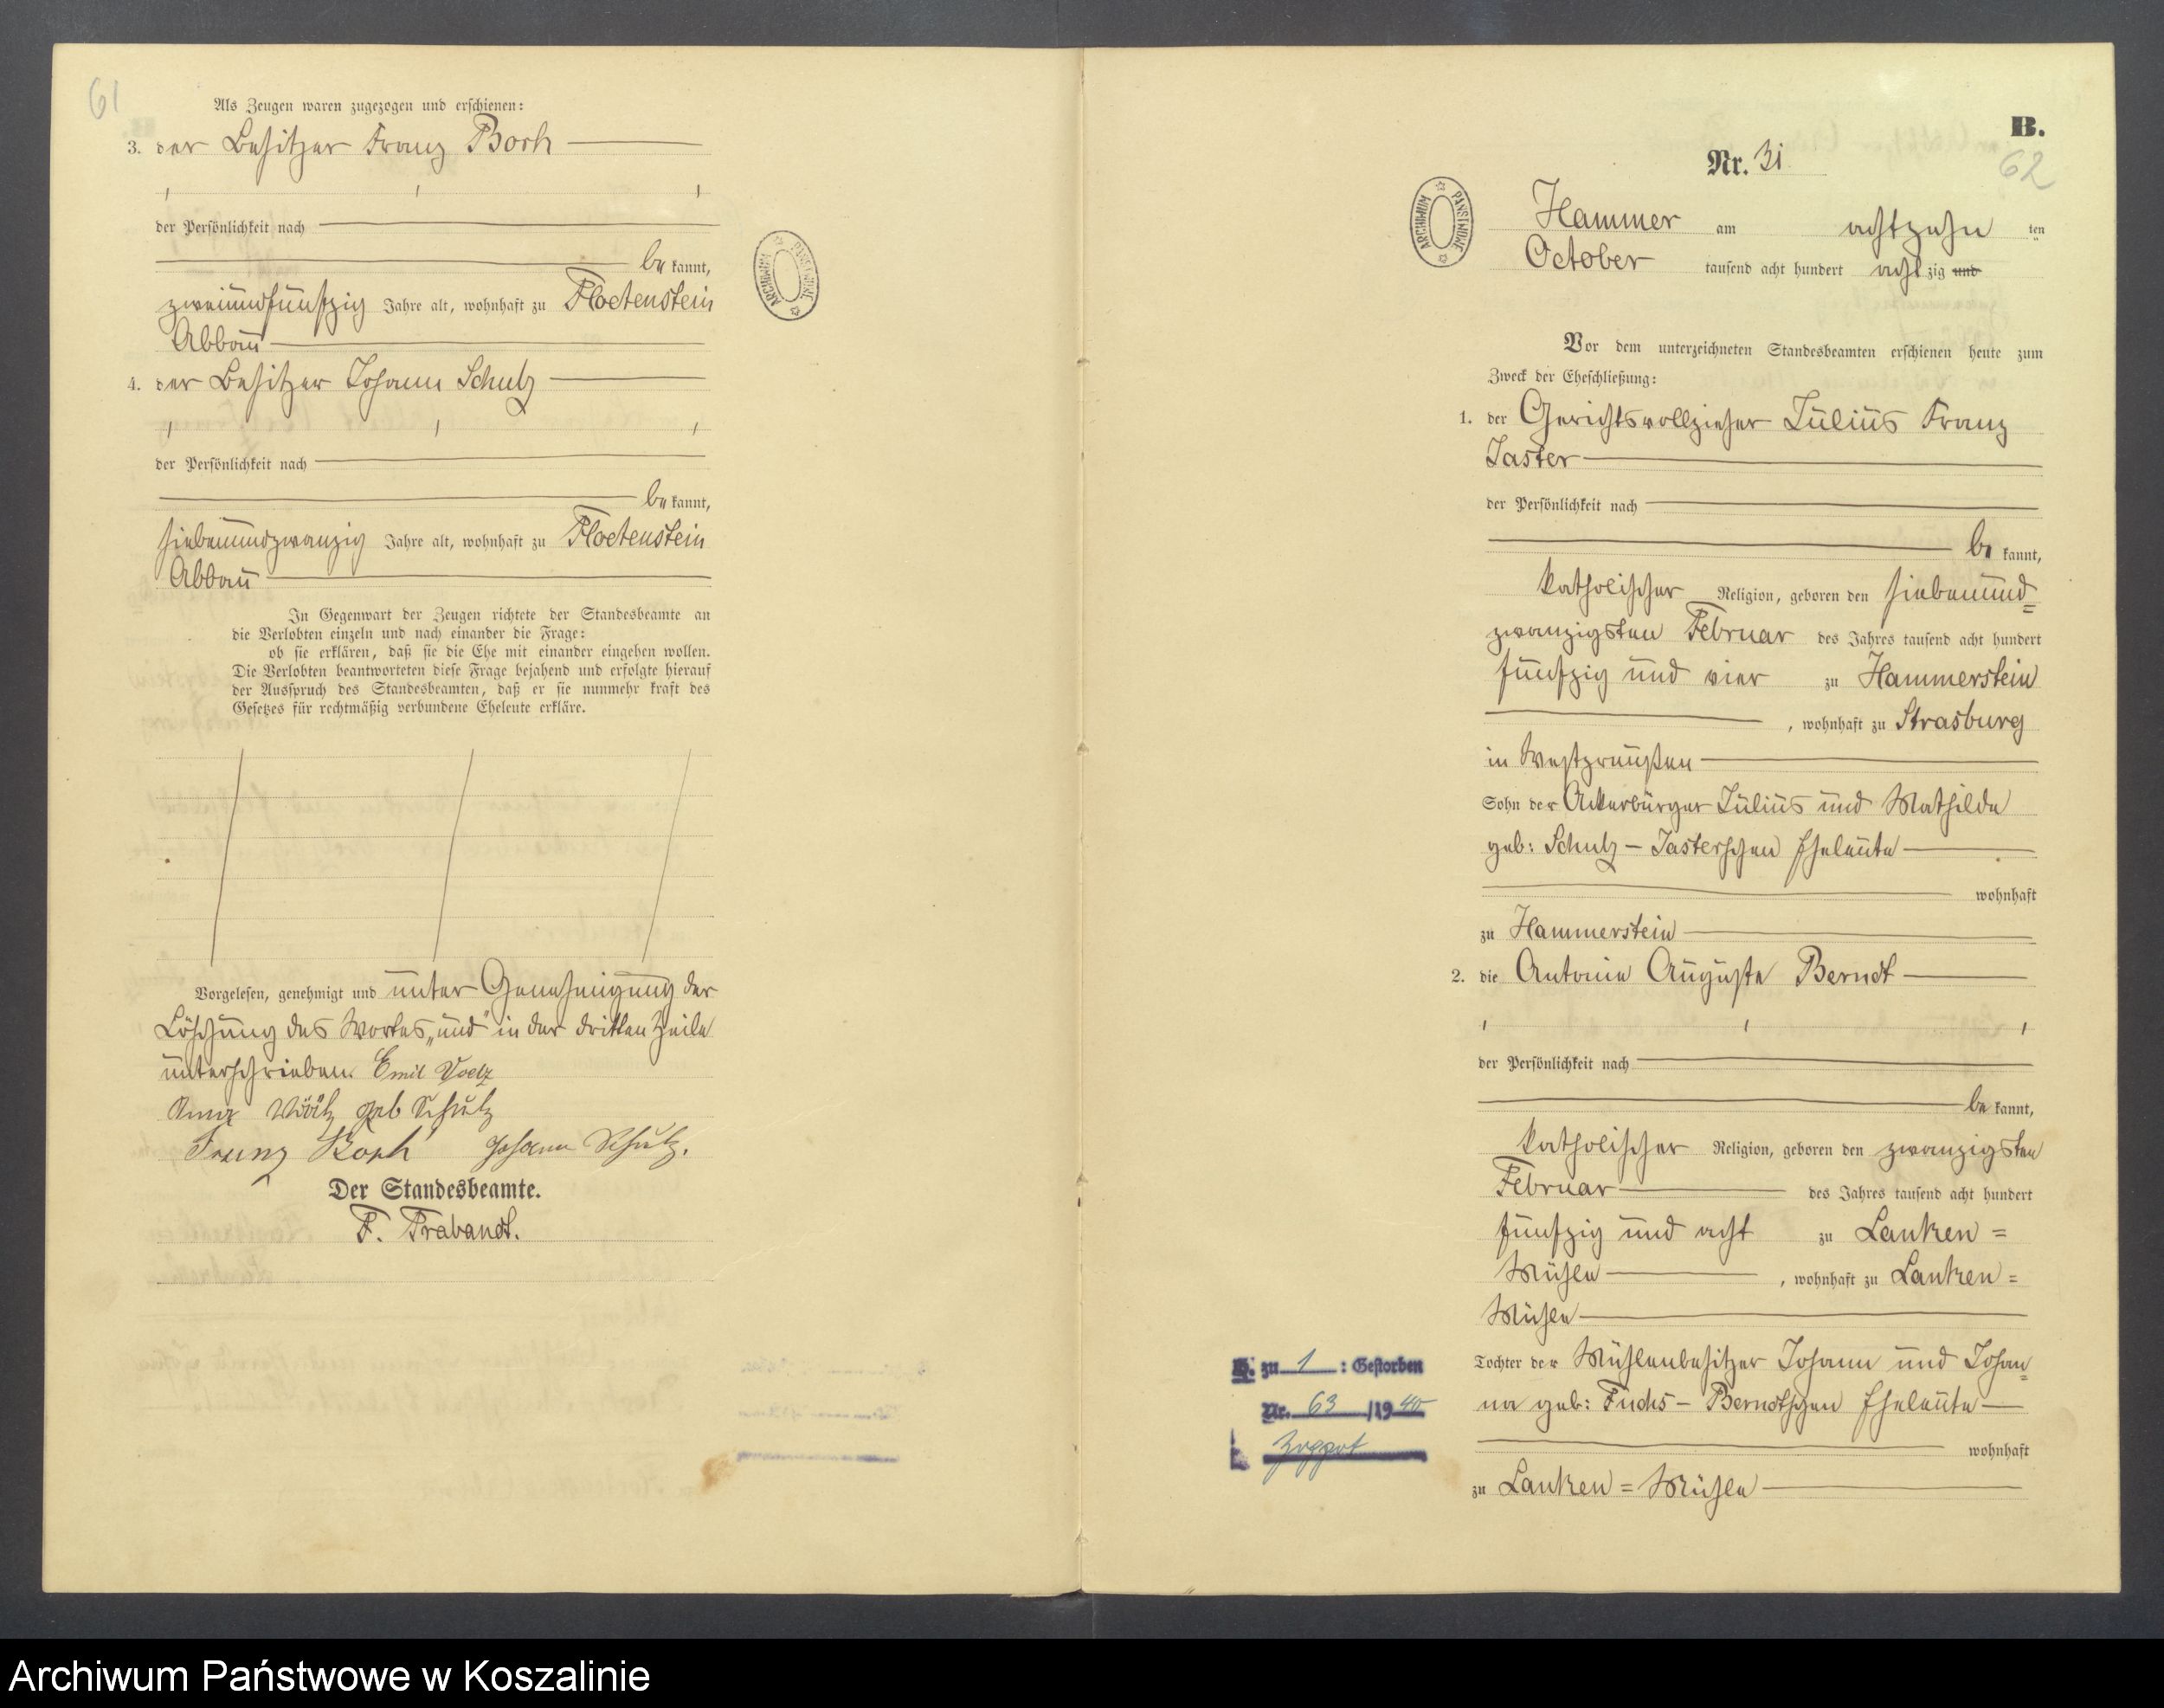 61
Als Zeugen waren zugezogen und erschienen:
3. der Besitzer Franz Borh
der Persönlichkeit nach
be kannt,
zweiundfünfzig Jahre alt, wohnhaft zu Floetenstein
Abbau
4. der Besitzer Johann Schulz
der Persönlichkeit nach
be kannt,
siebenundzwanzig Jahre alt, wohnhaft zu Floetenstein
Abbau
In Gegenwart der Zeugen richtete der Standesbeamte an
die Verlobten einzeln und nach einander die Frage:
ob sie erklären, daß sie die Ehe mit einander eingehen wollen.
Die Verlobten beantworteten diese Frage bejahend und erfolgte hierauf
der Ausspruch des Standesbeamten, daß er sie nunmehr kraft des
Gesetzes für rechtmäßig verbundene Eheleute erkläre.
Vorgelesen, genehmigt und unter Genehmigung der
Löschung des Wortes „und" in der dritten Zeile
unterschrieben. Emil Voelz
geb Schulz
Franz Johann Schulz.
Der Standesbeamte.
F. Trabandt.
ARCHIWUM PAŃSTWOWE
B.
62
Nr. 31
ARCHIWUM PAŃSTWOWE
Hammer am achtzehn ten
October tausend acht hundert acht zig und
Vor dem unterzeichneten Standesbeamten erschienen heute zum
Zweck der Eheschließung:
1. der Gerichtsvollzieher Julius Franz
Jaster
der Persönlichkeit nach
be kannt,
katholischer Religion, geboren den siebenund=
zwanzigsten Februar des Jahres tausend acht hundert
fünfzig und vier zu Hammerstein
, wohnhaft zu Strasburg
in Westpreußen
Sohn der Ackerbürger Julius und Mathilde
geb: Schulz – Jasterschen Eheleute
wohnhaft
zu Hammerstein
2. die Antonie Auguste Berndt
der Persönlichkeit nach
be kannt,
katholischer Religion, geboren den zwanzigsten
Februar des Jahres tausend acht hundert
fünfzig und acht zu Lanken=
Mühle, wohnhaft zu Lanken=
Mühle
Tochter der Mühlenbesitzer Johann und Johan=
na geb: Fuchs – Berndtschen Eheleute
wohnhaft
zu Lanken=Mühle
H. zu 1 : Gestorben
Nr. 63 /1940
Zoppot
Archiwum Państwowe w Koszalinie